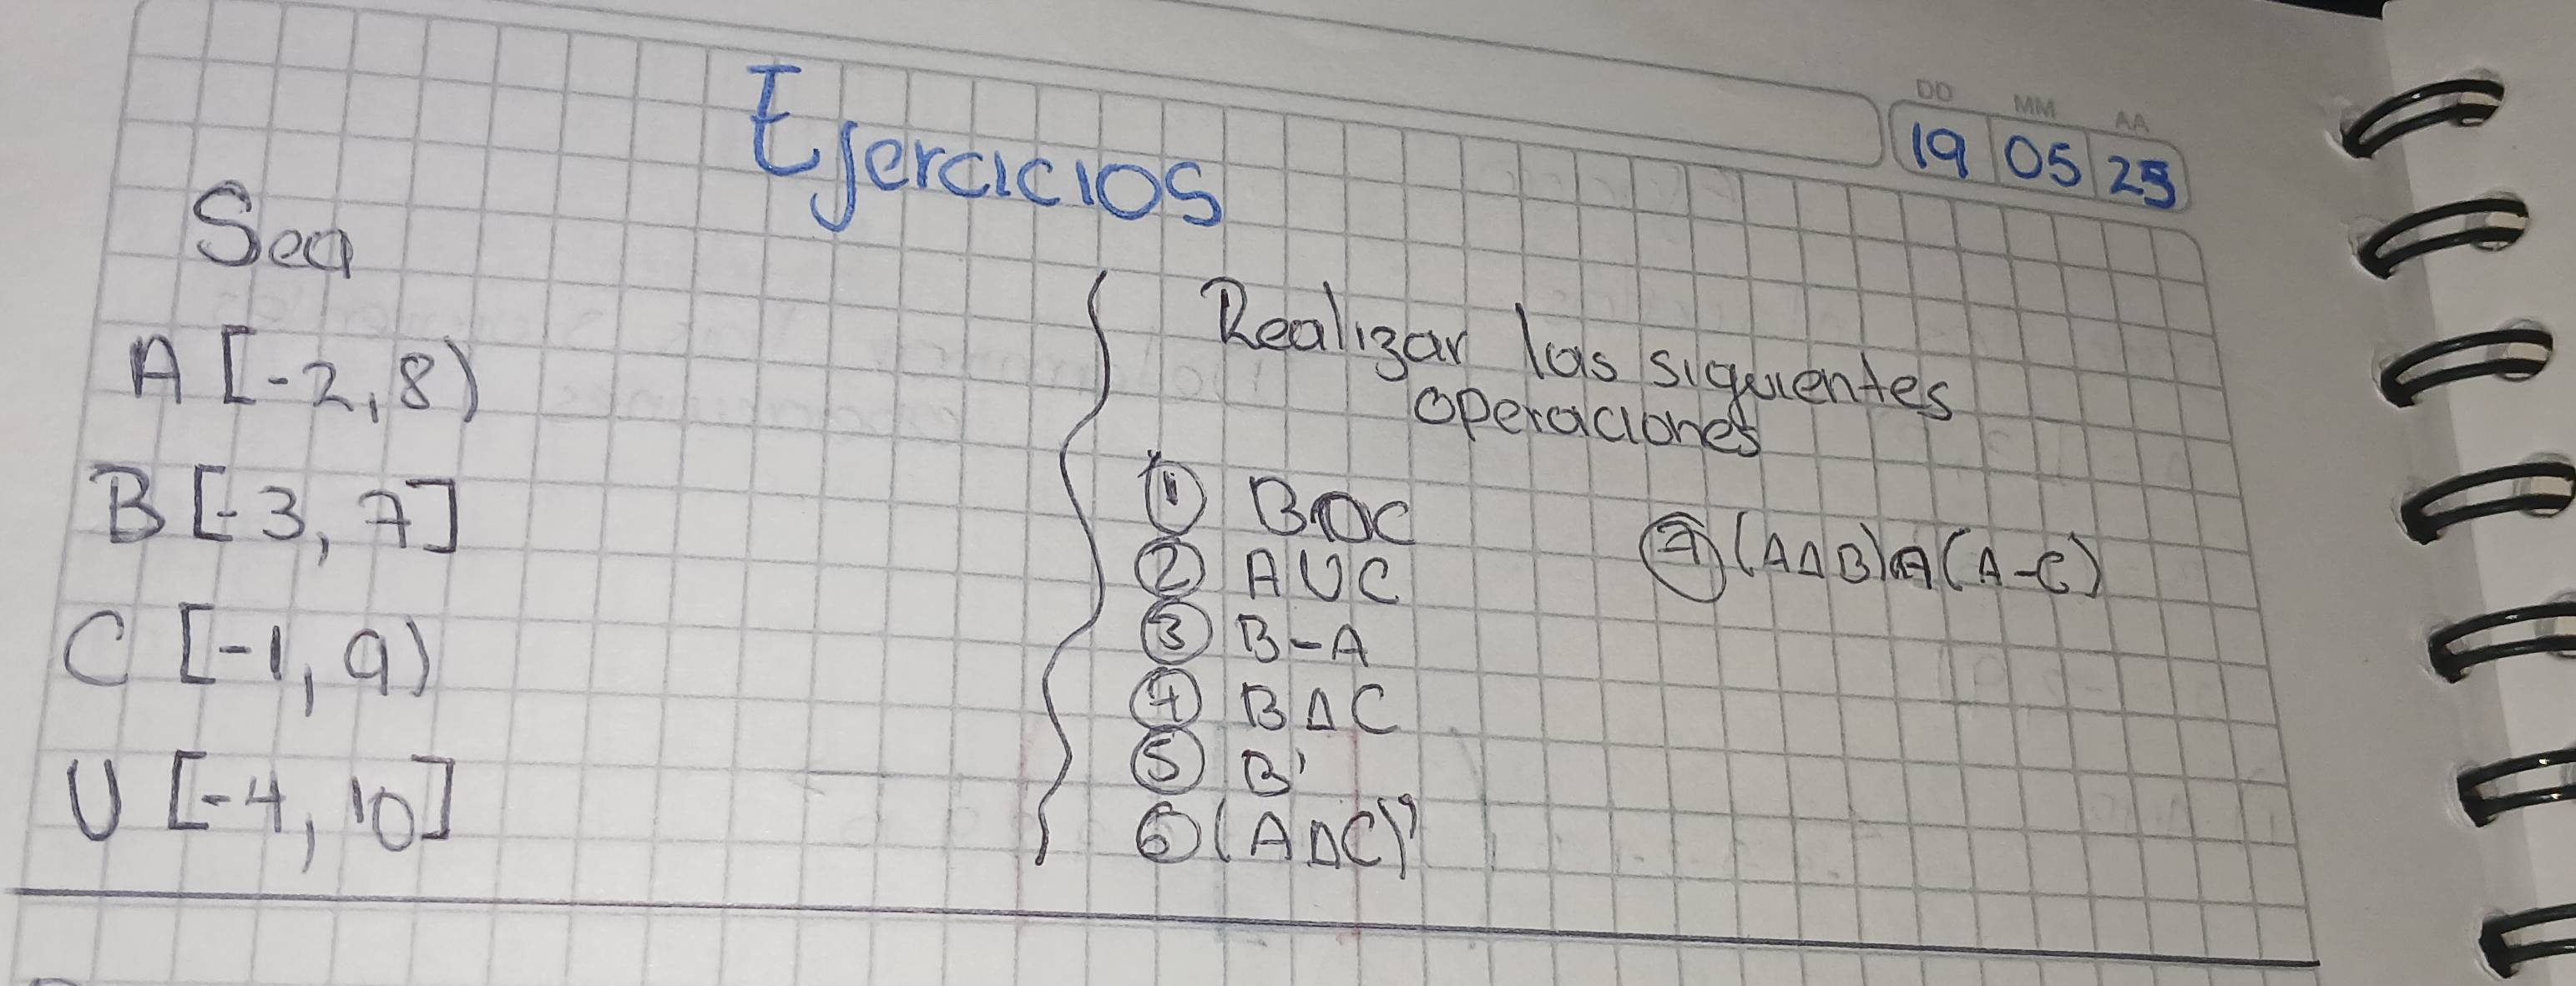 DD MM AA
19 05 25
Ejercicios
Sea
A [-2,8)
B [-3, 7]
C [-1, 9)
U [-4, 10]
Realizar las siguientes
operaciones
① B∩C
② A∪C
③ B-A
④ B∆C
⑤ B'
⑥ (A∆C)'
⑦ (A∆B)∩(A-C)